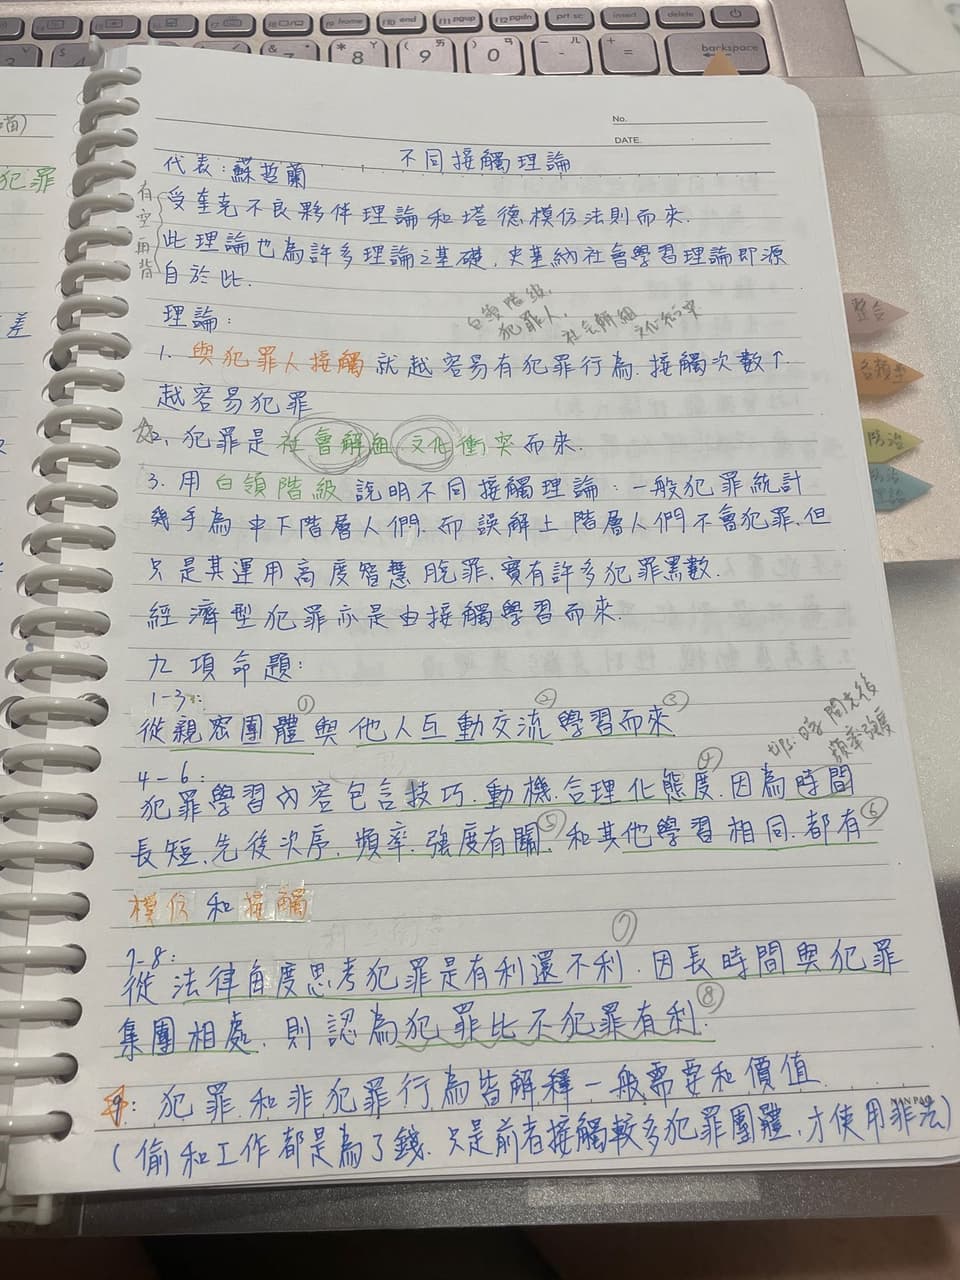 backspace
No.
DATE.
不同接觸理論
代表：蘇哲蘭
有空再背
受奎克不良夥伴理論和塔德模仿法則而來.
此理論也為許多理論之基礎, 史基納社會學習理論即源
自於此.
理論：
白領階級,
犯罪人,
社會解組
文化衝突
1. 與犯罪人接觸就越容易有犯罪行為. 接觸次數↑
越容易犯罪
2. 犯罪是社會解組文化衝突而來.
3. 用白領階級說明不同接觸理論：一般犯罪統計
幾乎為中下階層人們, 而誤解上階層人們不會犯罪, 但
只是其運用高度智慧脫罪, 實有許多犯罪黑數.
經濟型犯罪亦是由接觸學習而來.
九項命題：
1-3：
從親密團體①與他人互動交流②學習而來③
4-6：
時間先後
頻率強度
犯罪學習內容包含技巧.動機.合理化態度④, 因為時間
長短.先後次序.頻率.強度有關⑤, 和其他學習相同.都有⑥
模仿和接觸
7-8：
從法律角度思考犯罪是有利還不利⑦. 因長時間與犯罪
集團相處, 則認為犯罪比不犯罪有利⑧.
9：犯罪和非犯罪行為皆解釋一般需要和價值
(偷和工作都是為了錢, 只是前者接觸較多犯罪團體, 才使用非法)
整合
各類型
防治
犯罪